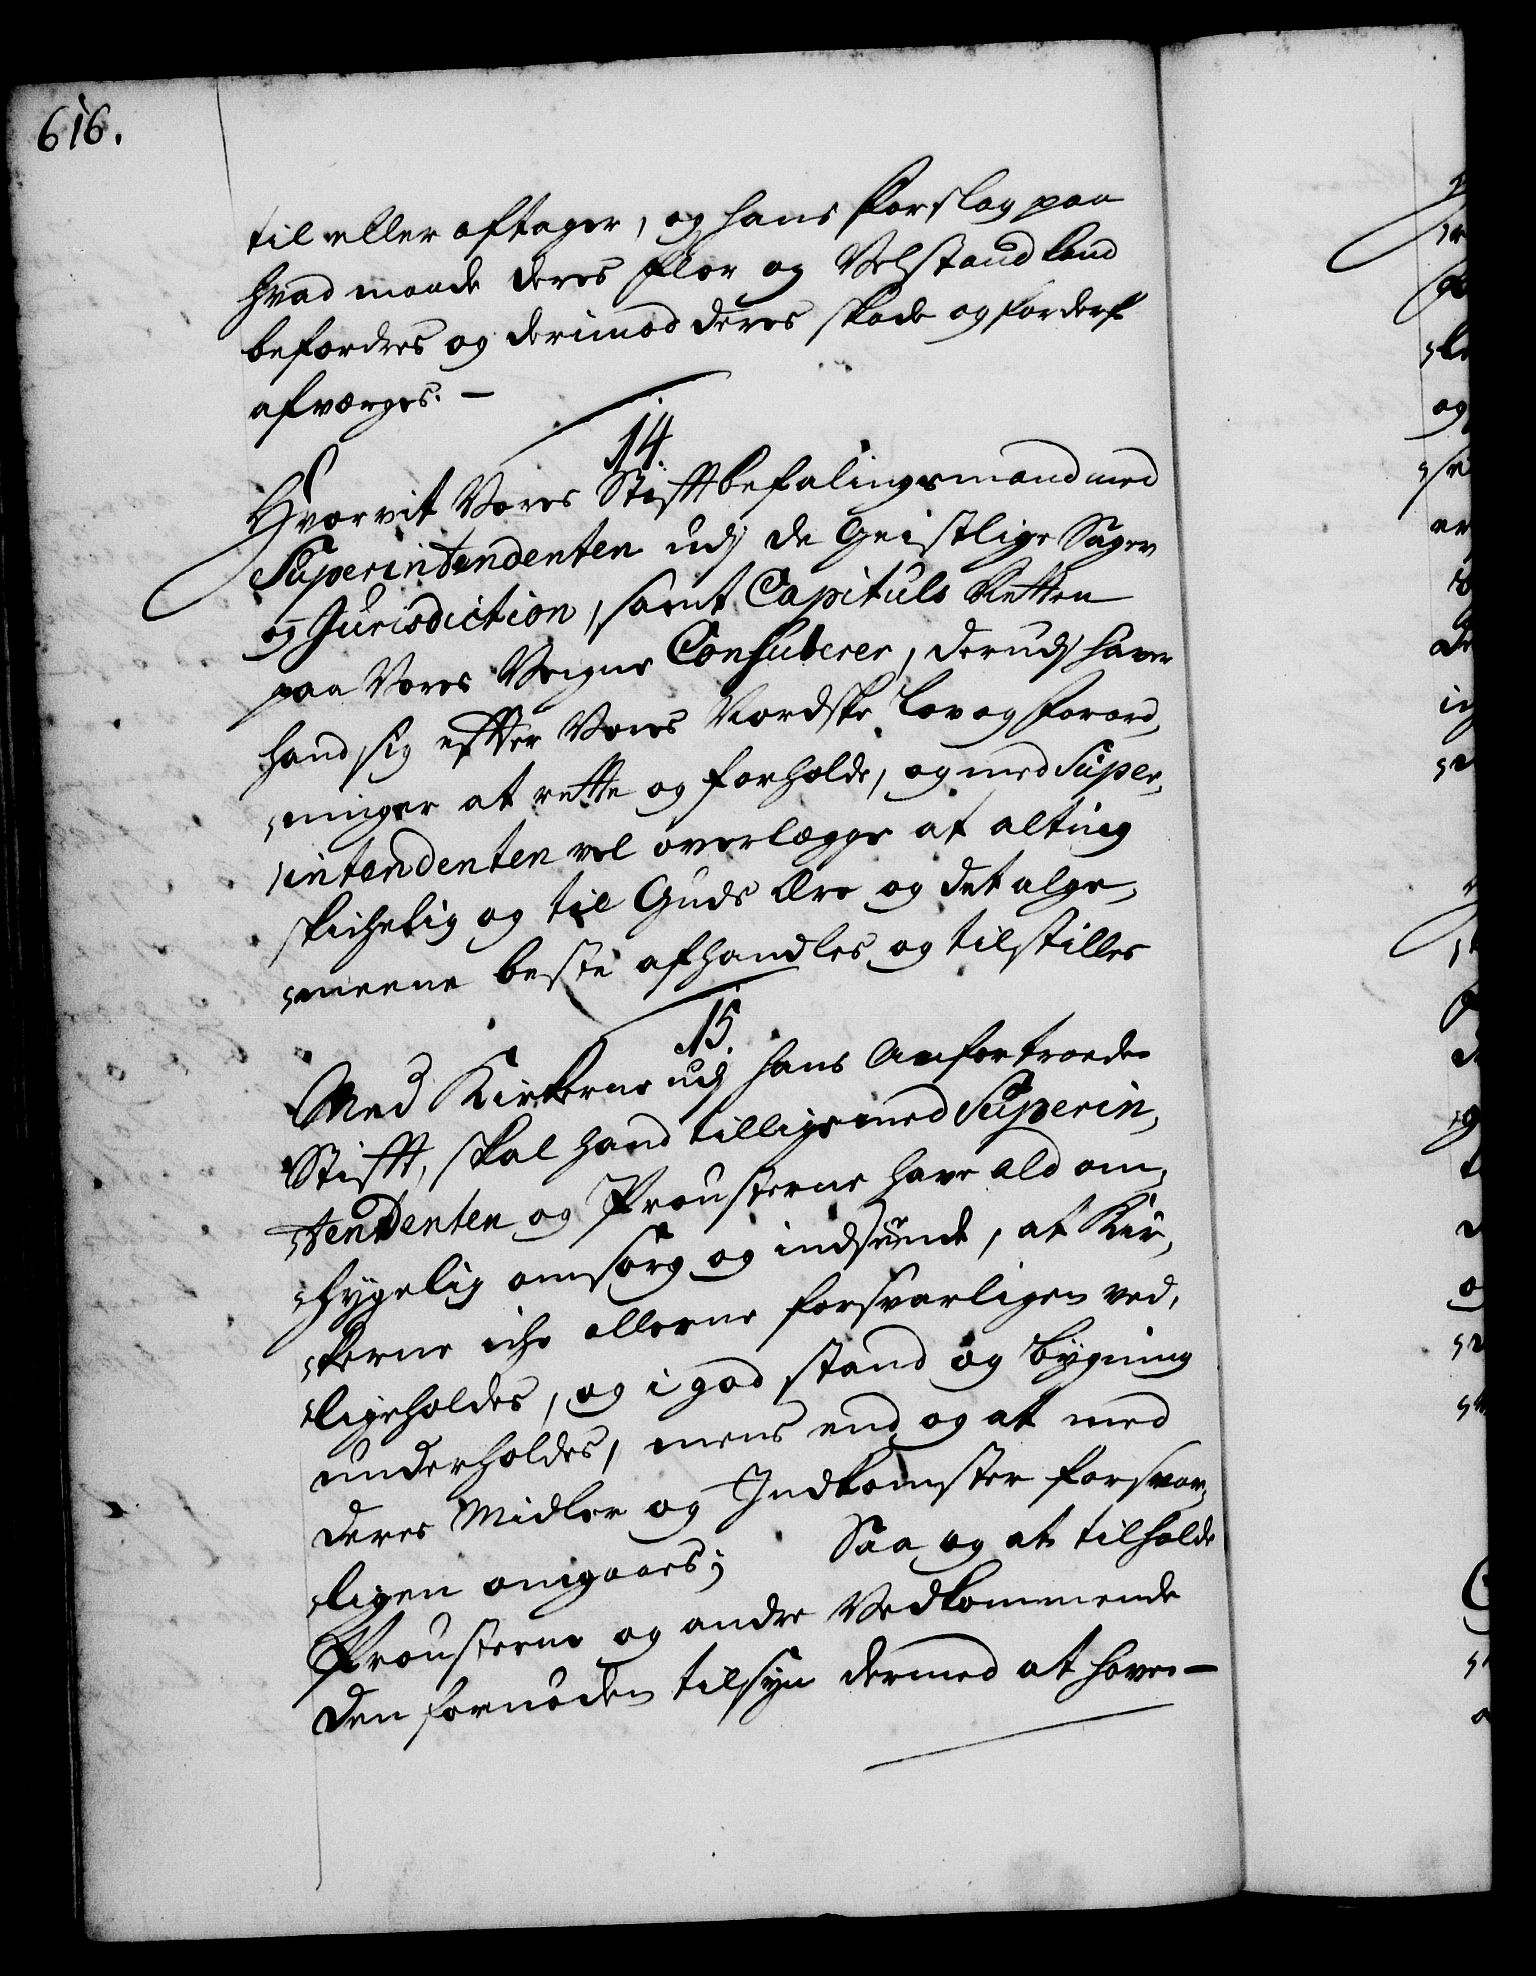 616.
til eller aftager, og hans forslag paa
hvad maade deres flor og Velstand kand
befordres og derimod deres skade og forderf
afværges. –
14.
Hvorvit Vores Stifftbefalingsmand med
Superintendenten udj de Geistlige Sager
og Jurisdiction, samt Capituls Retten
paa Vores Veigne Conhuberer, derudj haver
hand sig effter Vores Nordske Lov og forord,
,ninger at rette og forholde, og med Super,
,intendenten vel overlægge at alting
skichelig og til Guds Ære og det alge,
,meene beste afhandles og tilstilles
15.
Med Kirkerne udj hans Anfortroede
Stifft, skal hand tillige med Superin,
,tendenten og Prousterne have ald om,
,hygelig omsorg og indseende, at Kir,
,kerne iche alleene forsvarligen ved,
,ligeholdes, og i god stand og bygning
underholdes, mens end og at med
deres Midler og Indkomster forsvar,
,ligen omgaaes; Saa og at tilholde
Prousterne og andre Vedkommende
den fornøden tilsyn dermed at have –